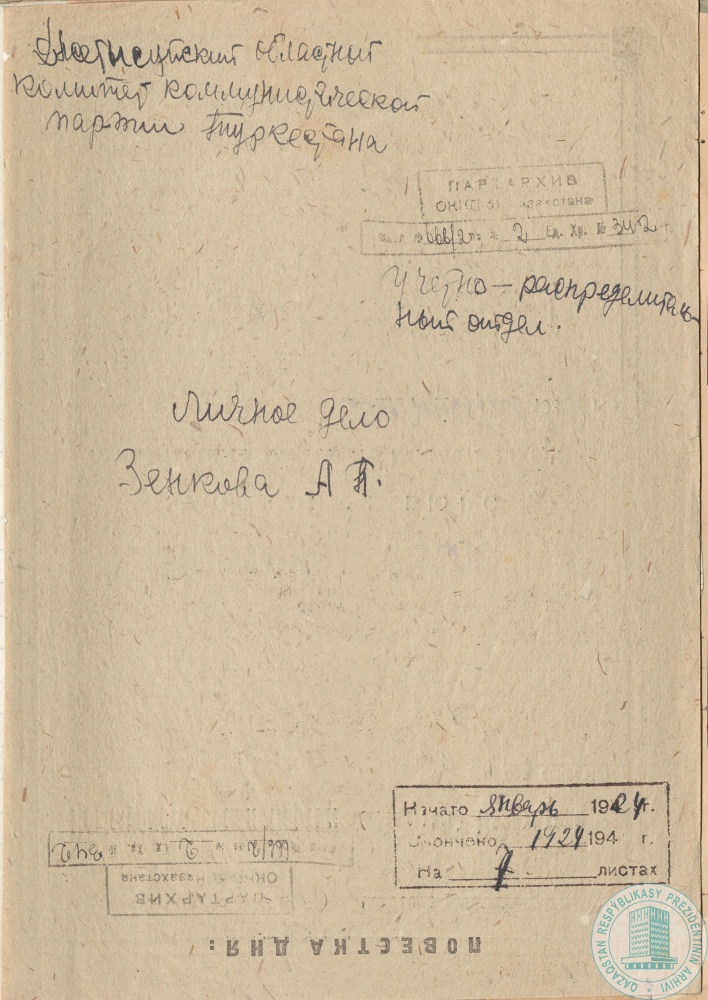 Джетисуйский областной
комитет коммунистической
партии Туркестана
ПАРТАРХИВ
Казахстана
666/2 2 Ед. Хр. № 342
Учетно-распределитель-
ный отдел.
Личное дело
Зенкова А П.
Начато январь 1924 г.
Окончено 1924 194 г.
На листах
666/2 2 Ед. Хр. № 342
ПАРТАРХИВ
Казахстана
ПОВЕСТКА ДНЯ:
QAZAQSTAN RESPÝBLIKASY PREZIDENTINIŃ ARHIVI